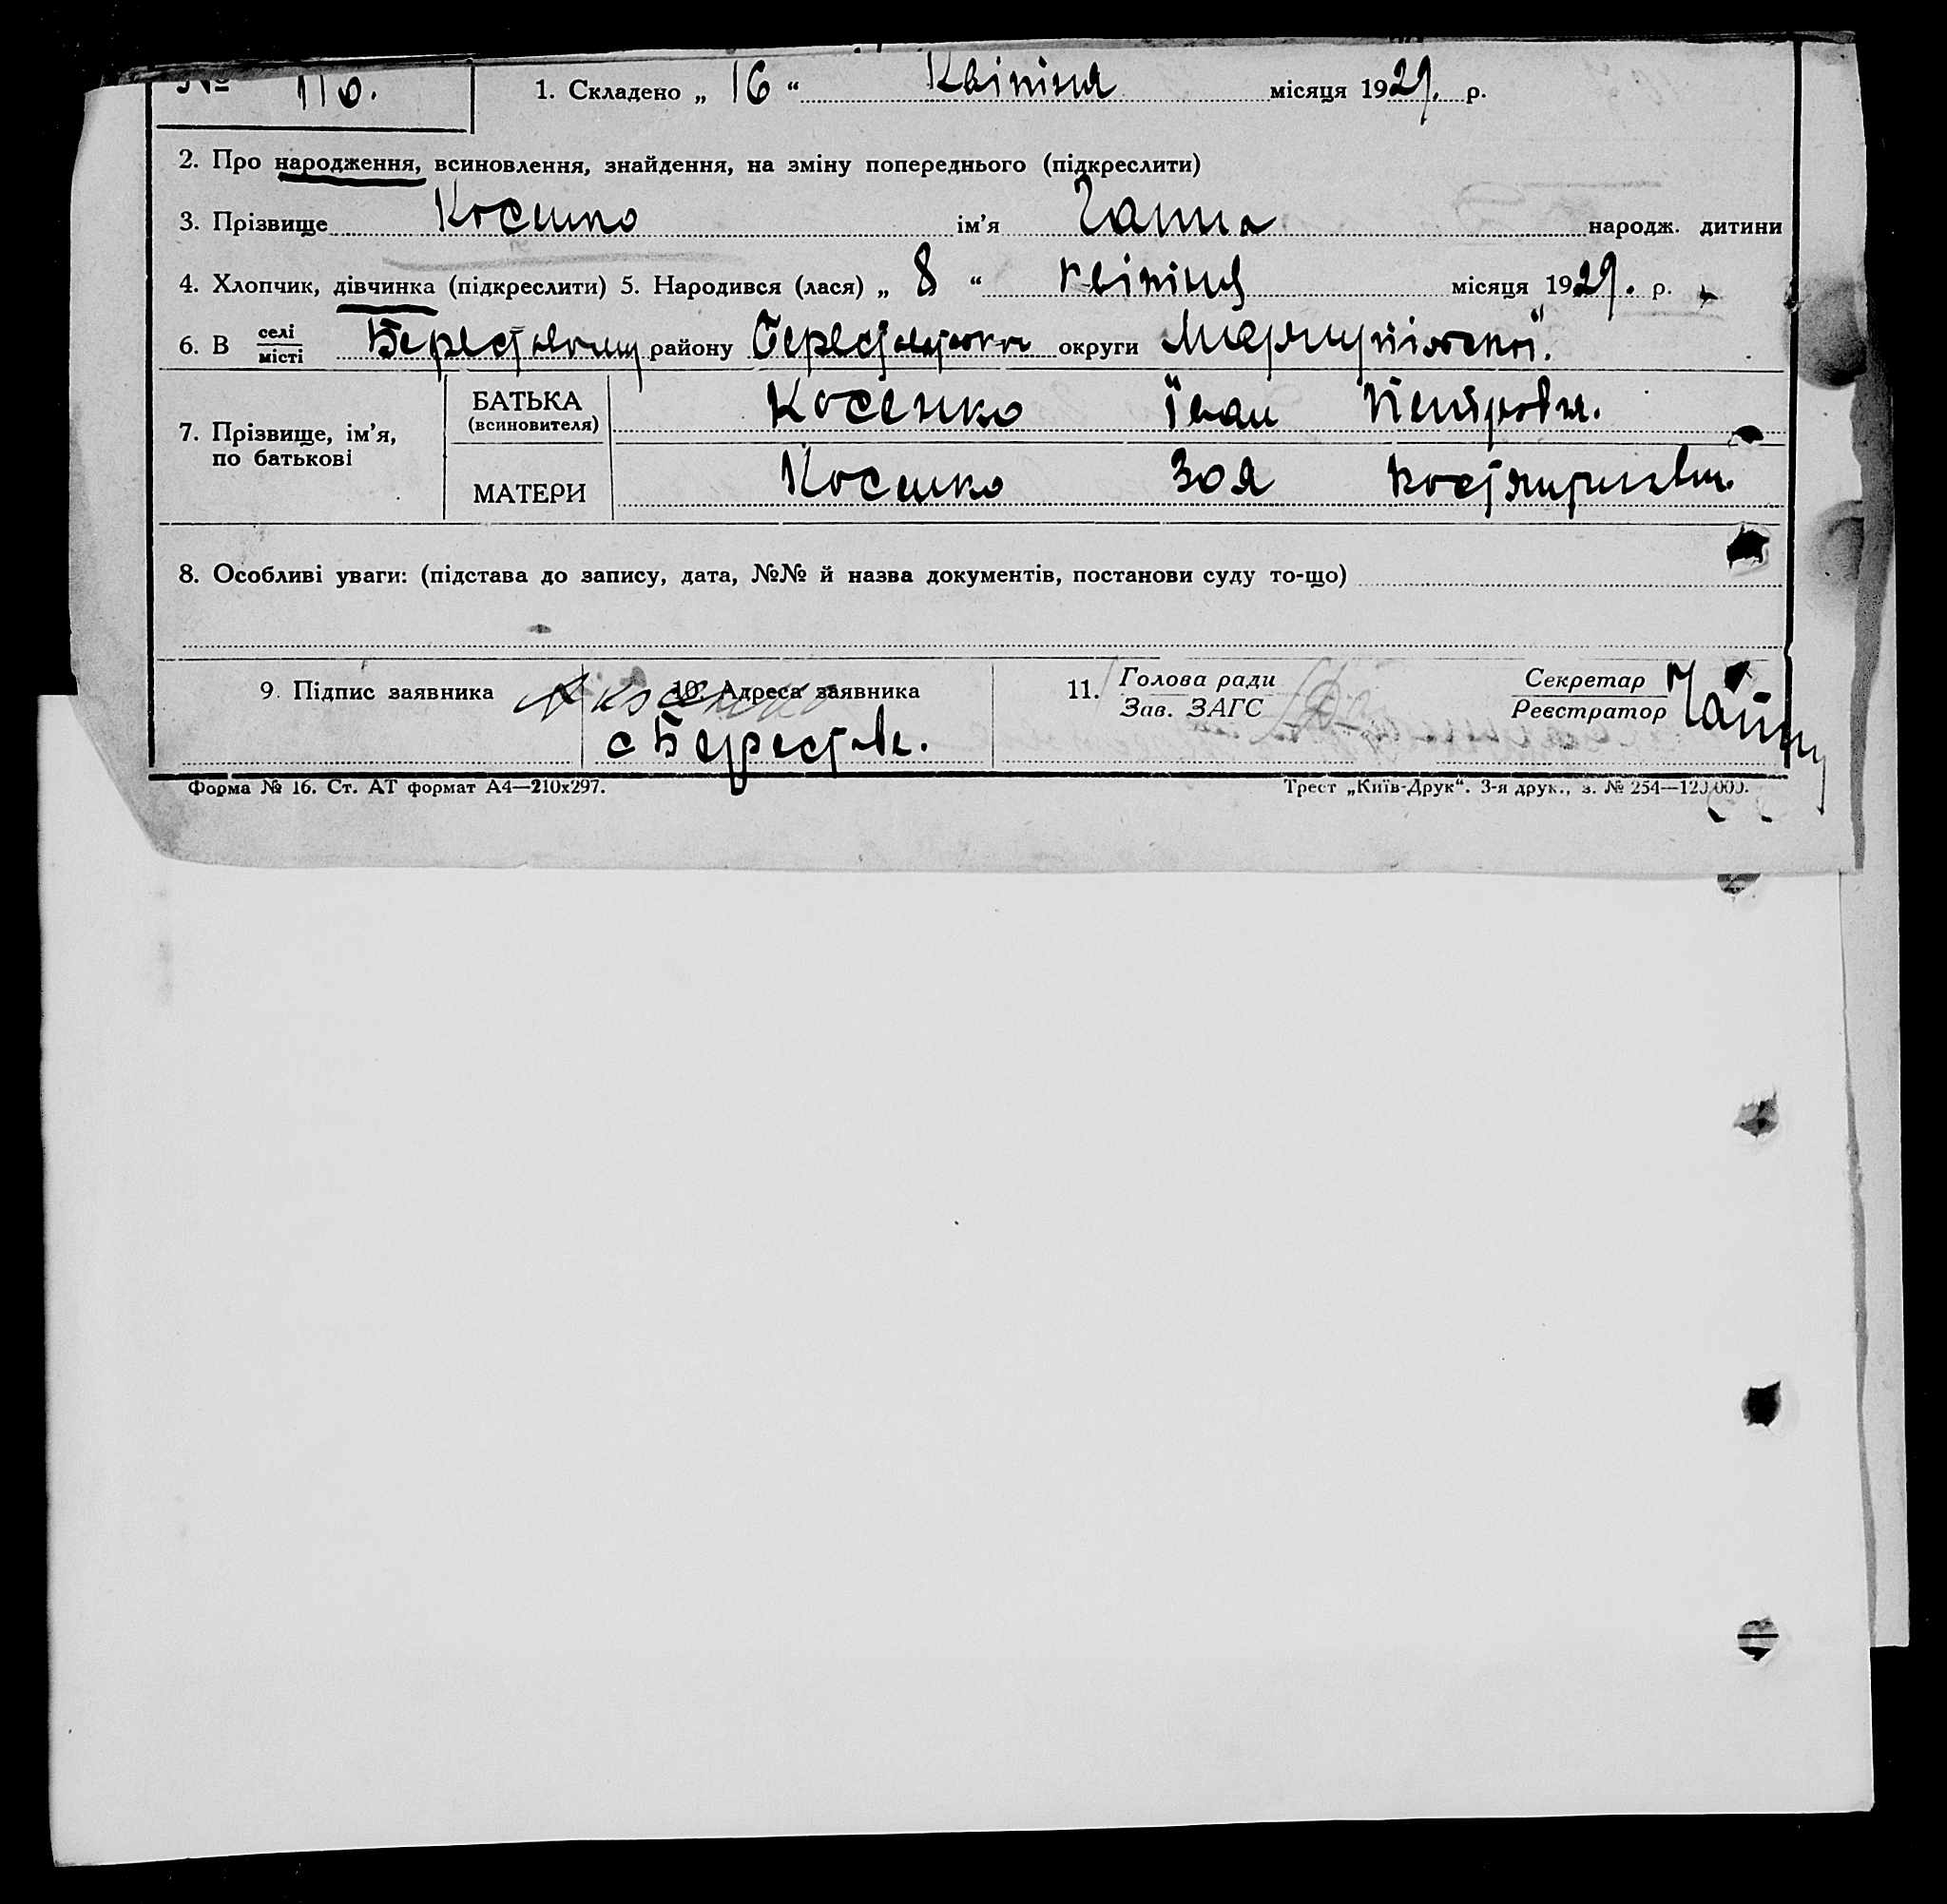 № 110.
1. Складено „ 16 “ Квітня місяця 1929. р.
2. Про народження, всиновлення, знайдення, на зміну попереднього (підкреслити)
3. Прізвище Косенко ім’я Ганна народж. дитини
4. Хлопчик, дівчинка (підкреслити) 5. Народився (лася) „ 8 “ квітня місяця 1929. р.
6. В селі/місті Берестовому району Берестовського округи Мариупільської.
7. Прізвище, ім’я, по батькові
БАТЬКА (всиновителя) Косенко Іван Петрович.
МАТЕРИ Косенко Зоя
8. Особливі уваги: (підстава до запису, дата, №№ й назва документів, постанови суду то-що)
9. Підпис заявника
10. Адреса заявника
с Берестове.
11. Голова ради
Зав. ЗАГС
Секретар
Реєстратор
Форма № 16. Ст. АТ формат А4—210х297.
Трест „Київ-Друк“. 3-я друк., з. № 254—120.000.